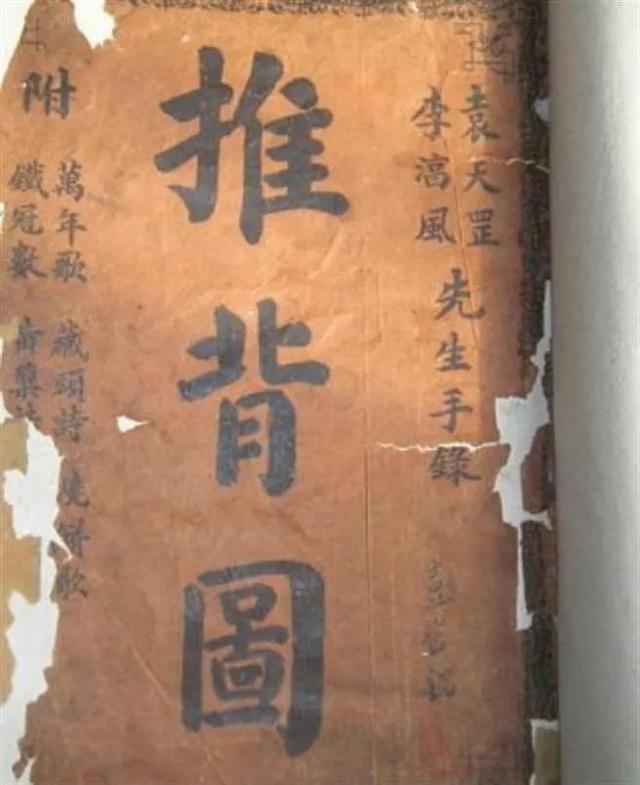 袁天罡
李滈風
先生手錄
推背圖
附
萬年歌 藏頭詩 燒餅歌
鐵冠數